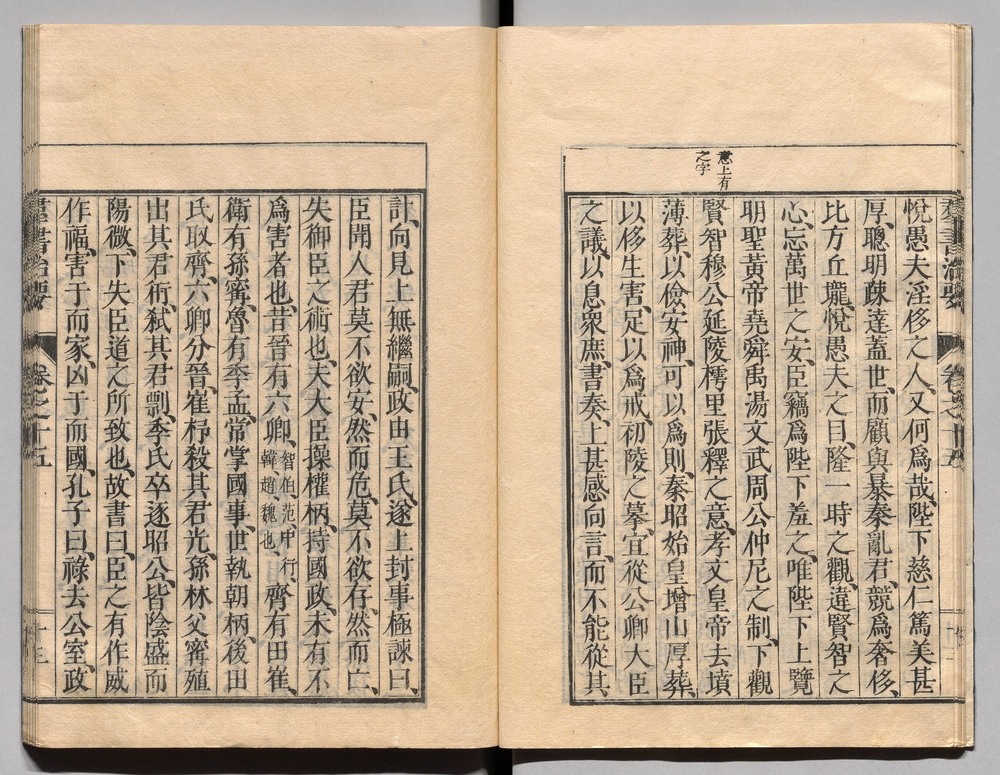 意上有
之字
悅愚夫淫侈之人、又何爲哉、陛下慈仁篤美甚
厚、聰明疎達蓋世、而顧與暴秦亂君、競爲奢侈、
比方丘壠、悅愚夫之目、隆一時之觀、違賢智之
心、忘萬世之安、臣竊爲陛下羞之、唯陛下上覽
明聖黃帝堯舜禹湯文武周公仲尼之制、下觀
賢智穆公延陵樗里張釋之意、孝文皇帝去墳
薄葬、以儉安神、可以爲則、秦昭始皇增山厚葬、
以侈生害、足以爲戒、初陵之摹、宜從公卿大臣
之議、以息衆庶、書奏、上甚感向言、而不能從其
計、向見上無繼嗣、政由王氏、遂上封事極諫曰、
臣聞人君莫不欲安、然而危、莫不欲存、然而亡、
失御臣之術也、夫大臣操權柄、持國政、未有不
爲害者也、昔晉有六卿、智伯、范、中行、韓、趙、魏也、齊有田崔、
衛有孫甯、魯有季孟、常掌國事、世執朝柄、後田
氏取齊、六卿分晉、崔杼殺其君光、孫林父甯殖
出其君衎、弑其君剽、季氏卒逐昭公、皆陰盛而
陽微、下失臣道之所致也、故書曰、臣之有作威
作福、害于而家、凶于而國、孔子曰、祿去公室、政
群書治要 卷之十五 十三